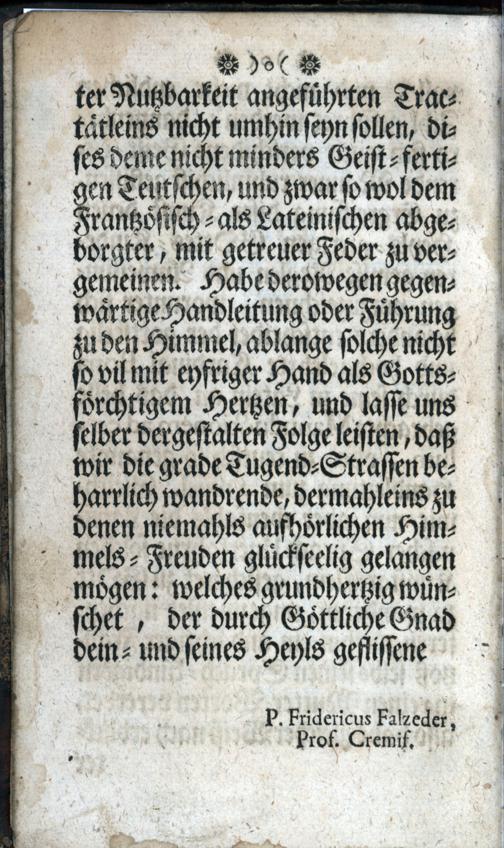 )o(
ter Nutzbarkeit angeführten Trac-
tätleins nicht umhin seyn sollen, di-
ses deme nicht minders Geist-ferti-
gen Teutschen, und zwar so wol dem
Frantzösisch-als Lateinischen abge-
borgter, mit getreuer Feder zu ver-
gemeinen. Habe derowegen gegen-
wärtige Handleitung oder Führung
zu den Himmel, ablange solche nicht
so vil mit eyfriger Hand als Gotts-
förchtigem Hertzen, und lasse uns
selber dergestalten Folge leisten, daß
wir die grade Tugend-Strassen be-
harrlich wandrende, dermahleins zu
denen niemahls aufhörlichen Him-
mels-Freuden glückseelig gelangen
mögen: welches grundhertzig wün-
schet, der durch Göttliche Gnad
dein- und seines Heyls geflissene
P. Fridericus Falzeder,
Prof. Cremis.